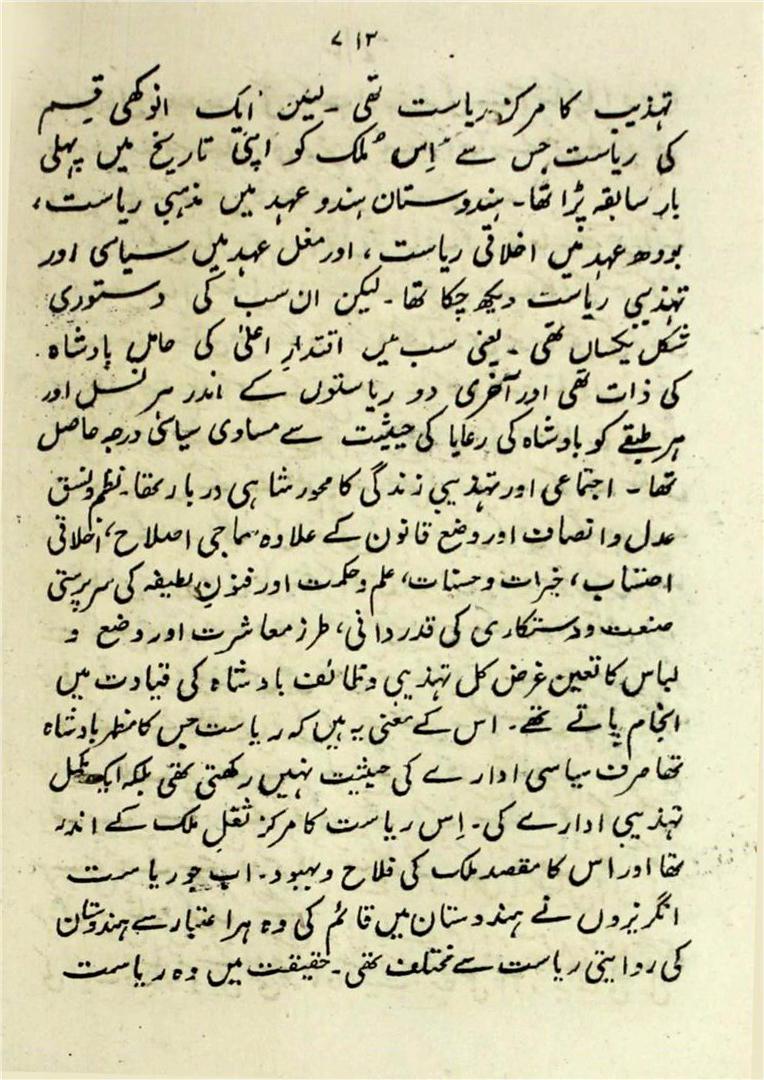 ۷۱۳
تہذیب کا مرکز ریاست تھی ۔ لیکن ایک انوکھی قسم
کی ریاست جس سے اِس مُلک کو اپنی تاریخ میں پہلی
بار سابقہ پڑا تھا۔ ہندوستان ہندو عہد میں مذہبی ریاست،
بودھ عہد میں اخلاقی ریاست ، اور مغل عہد میں سیاسی اور
تہذیبی ریاست دیکھ چکا تھا ۔ لیکن ان سب کی دستوری
شکل یکساں تھی ۔ یعنی سب میں اقتدارِ اعلیٰ کی حامل بادشاہ
کی ذات تھی اور آخری دو ریاستوں کے اندر ہر نسل اور
ہر طبقے کو بادشاہ کی رعایا کی حیثیت سے مساوی سیاسی درجہ حاصل
تھا ۔ اجتماعی اور تہذیبی زندگی کا محور شاہی دربار تھا۔ نظم و نسق
عدل و انصاف اور وضع قانون کے علاوہ سماجی اصلاح، اخلاقی
احتساب ، خیرات و حسنات، علم و حکمت اور فنونِ لطیفہ کی سرپرستی
صنعت و دستکاری کی قدردانی، طرز معاشرت اور وضع و
لباس کا تعین غرض کل تہذیبی وظائف بادشاہ کی قیادت میں
انجام پاتے تھے۔ اس کے معنی یہ ہیں کہ ریاست جس کا مظہر بادشاہ
تھا صرف سیاسی ادارے کی حیثیت نہیں رکھتی تھی بلکہ ایک مکمل
تہذیبی ادارے کی۔ اِس ریاست کا مرکز ثقل ملک کے اندر
تھا اور اس کا مقصد ملک کی فلاح و بہبود۔ اب جو ریاست
انگریزوں نے ہندوستان میں قائم کی وہ ہر اعتبار سے ہندوستان
کی روایتی ریاست سے مختلف تھی۔ حقیقت میں وہ ریاست